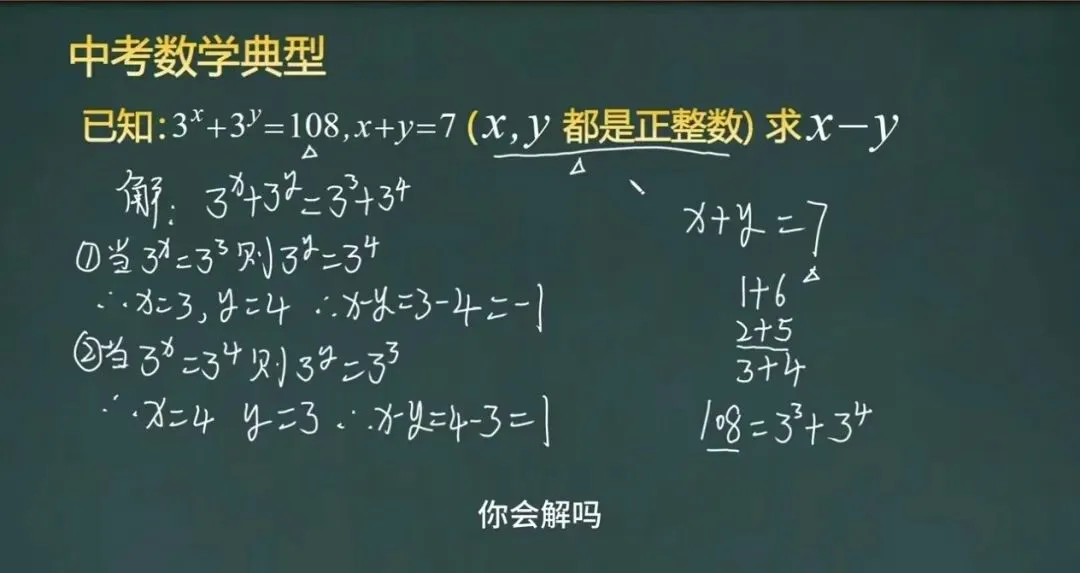 中考数学典型
已知:3^x+3^y=108,x+y=7 (x,y 都是正整数) 求x-y
解: 3^x+3^y=3^3+3^4
①当 3^x=3^3 则 3^y=3^4
∴x=3, y=4 ∴x-y=3-4=-1
②当 3^x=3^4 则 3^y=3^3
∴x=4 y=3 ∴x-y=4-3=1
x+y=7
1+6
2+5
3+4
108=3^3+3^4
你会解吗